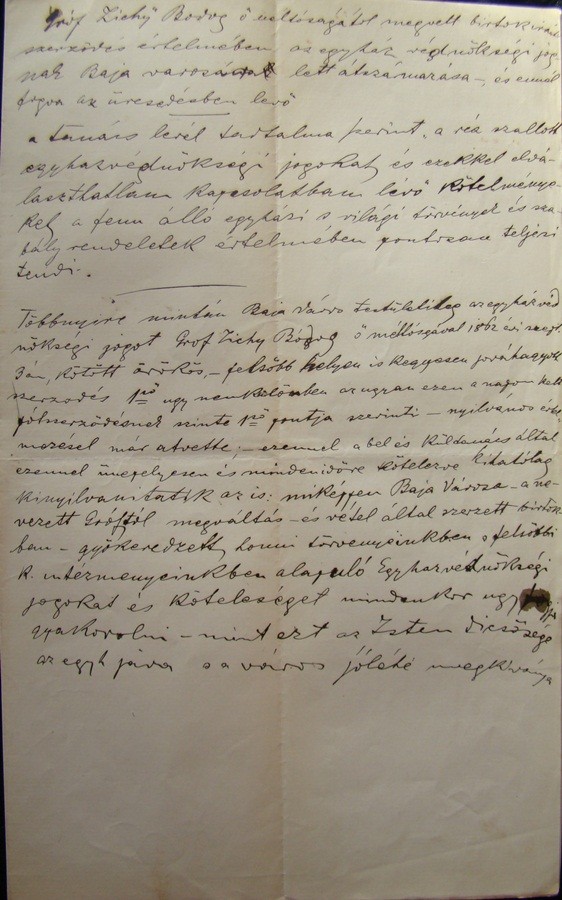 Gróf Zichy Bodog ő méltóságától megvett birtok iránt
szerződés értelmében az egyház védnökségi jog
nak Baja városára lett átszármazása –, és ennél
fogva az üresedésben levő
a tanács levél tartalma szerint, a reá szállott
egyházvédnökségi jogokat és ezekkel elvá-
laszthatlan kapcsolatban lévő kötelménye-
ket a fenn álló egyházi s világi törvények és sza-
bály rendeletek értelmében pontosan teljesí
tendi.
Többnyire mintán Baja Város testületileg az egyházvéd
nökségi jogot Gróf Zichy Bodog ő méltóságával 1862 évi
3án, kötött örökös, – felsőbb helyen is kegyesen jóváhagyott
szerződés 1ső ugy nemkülönben az ugyan ezen a napon kelt
pótszerződésnek szinte 1ső pontja szerinti – nyilvános
már átvette; – ezennel a bel és kültanács által
ezennel ünnepélyesen és minden időre kötelezve kihatólag
kinyilvaníttatik az is: miképpen Baja Városa – a ne-
vezett Gróftól megváltás – és vétel által szerzett birtok-
ban – gyökeredzett, honni törvényeinkben s felsőbb
k. intézményeinkben alapuló Egyházvédnökségi
jogokat és kötelességet mindenkor ugy
gyakorolni – mint ezt az Isten dicsősége
az egyh java s a város jóléte megkivánja